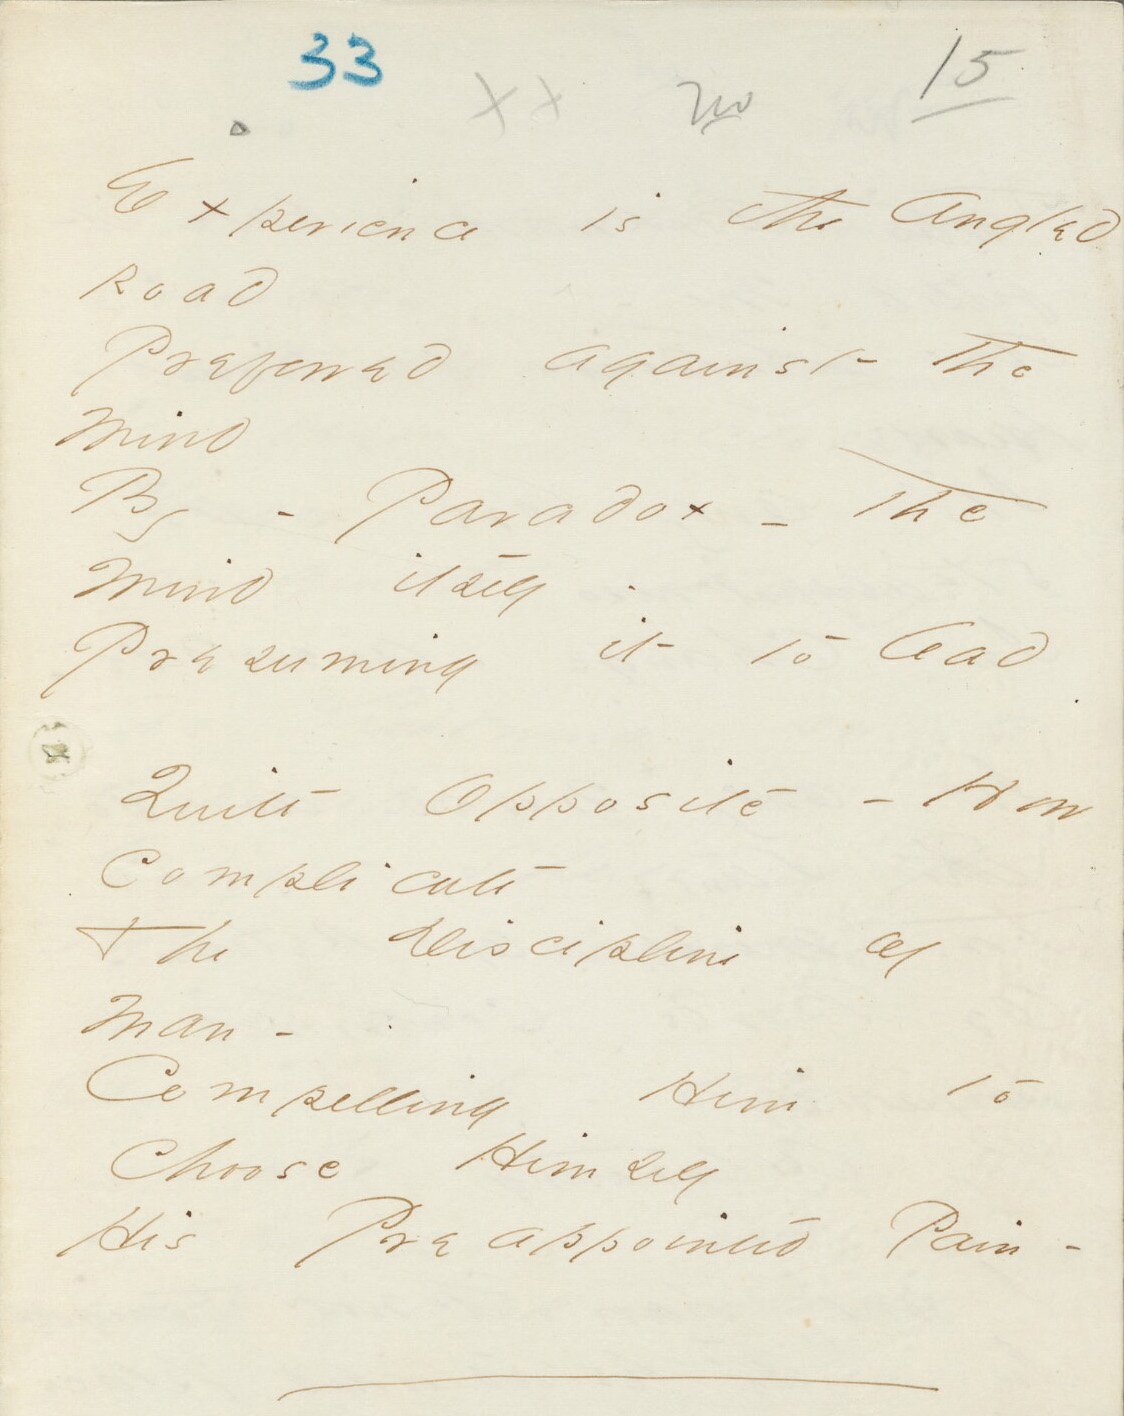 33 xx 15
Experience is the Angled
Road
Preferred against the
Mind
By - Paradox - the
Mind itself -
Presuming it to lead
Quite Opposite - How
Complicate
The Discipline of
Man -
Compelling Him to
Choose Himself
His Preappointed Pain -